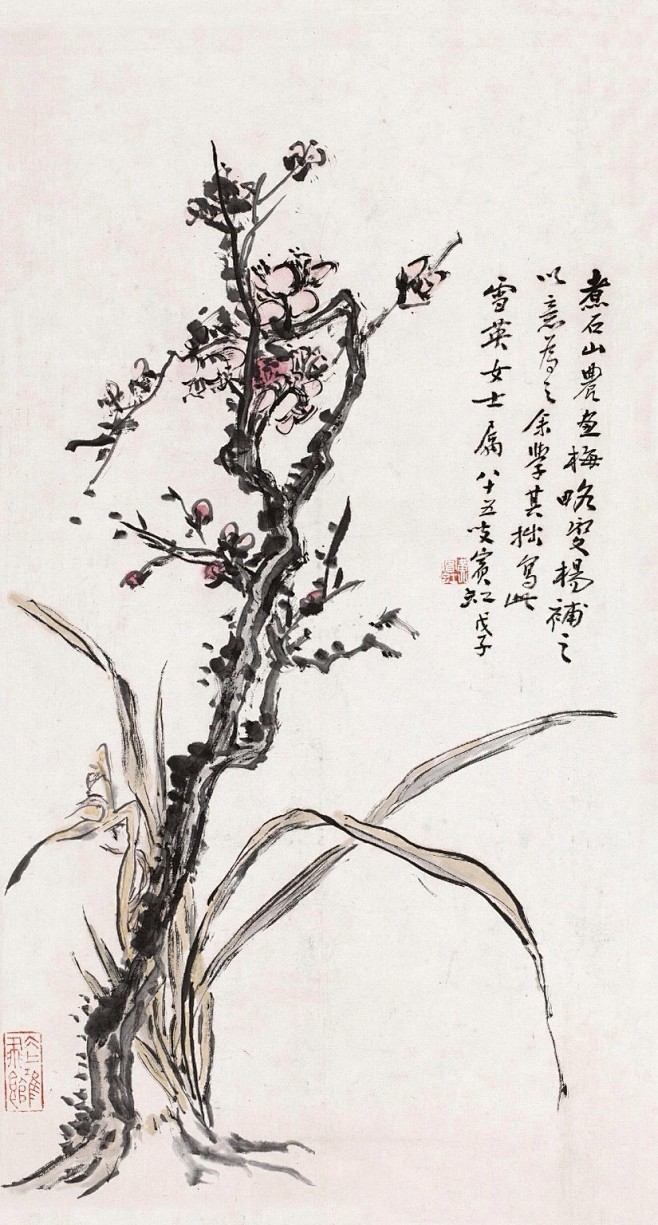 煮石山農畫梅略變楊補之
以意為之余學其拙寫此
雪英女士屬八十五叟賓虹戊子